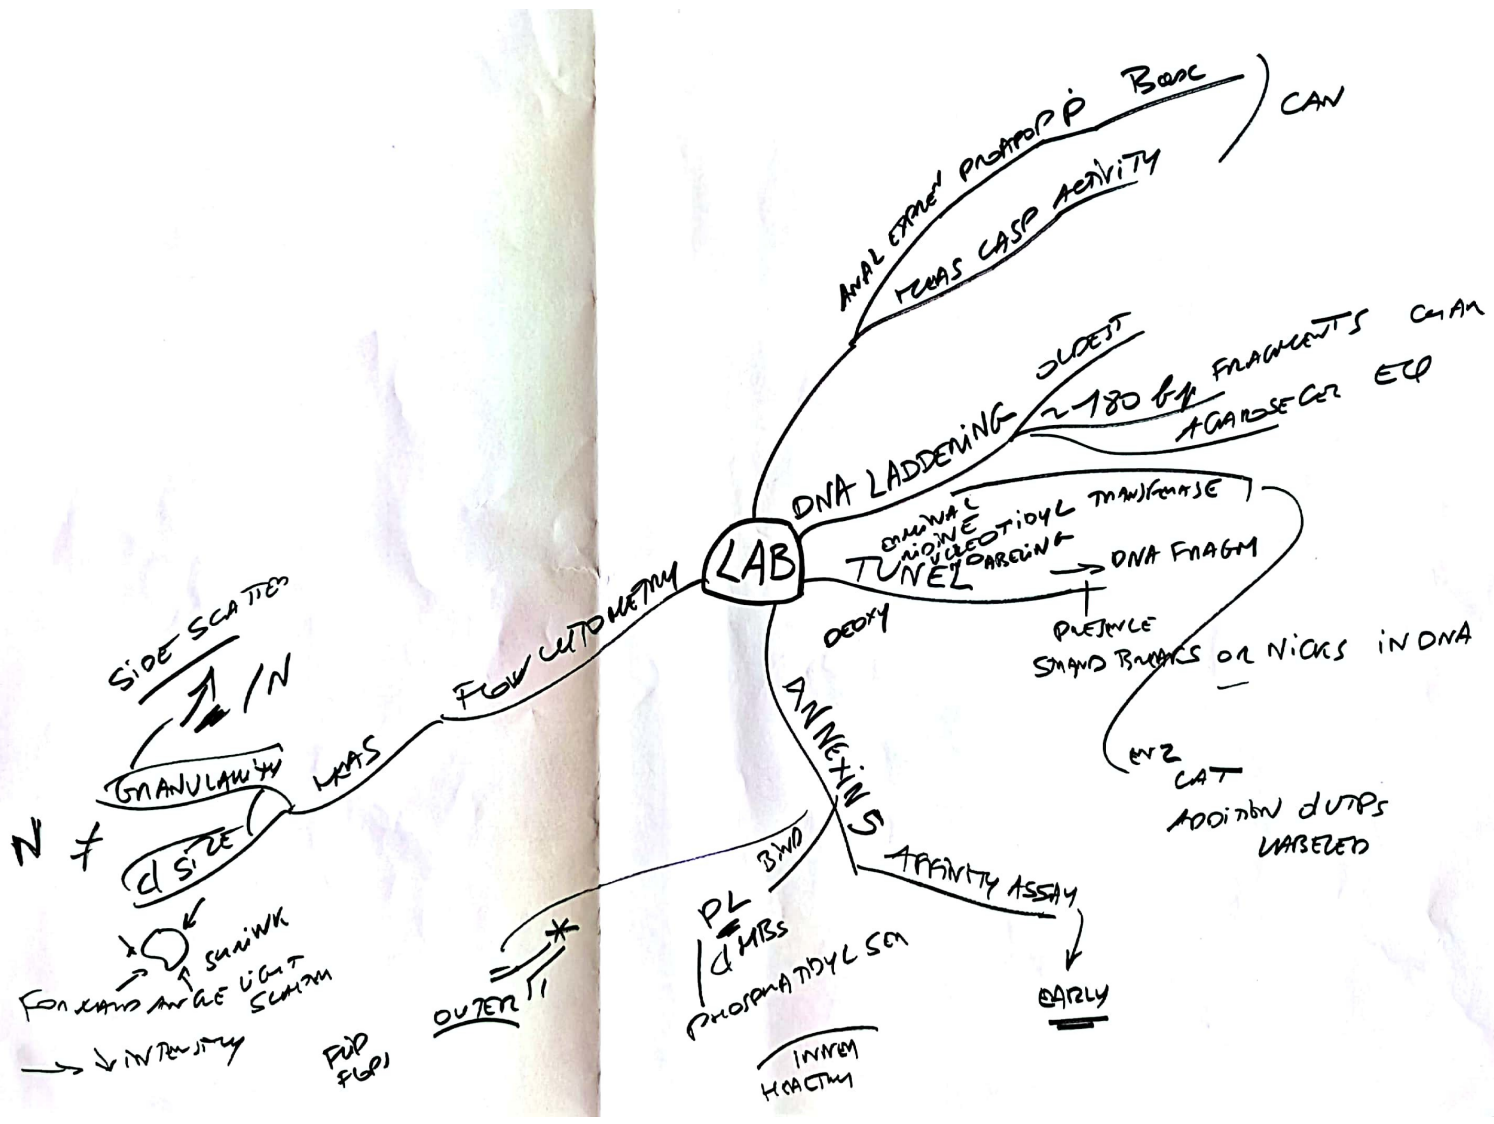 CAN
MEAS CASP ACTIVITY
DNA LADDERING
OLDEST
~180 bp FRAGMENTS CHAR
AGAROSE GEL
LAB
TUNEL
ERMINAL
NUCLEOTIDYL TRANSFERASE
LABELING
DEOXY
→ DNA FRAGM
PRESENCE
STRAND BREAKS OR NICKS IN DNA
ENZ
CAT
ADDITION dUTPs
LABELED
ANNEXIN 5
AFFINITY ASSAY
EARLY
BIND
PL
PHOSPHATIDYL SER
INNER
HEALTHY
OUTER
FLIP
FLOPS
FLOW CYTOMETRY
MEAS
GRANULARITY
SIDE SCATTER
/ N
N ≠
SIZE
SHRINK
FORWARD ANGLE LIGHT
SCATTER
→ ↓ INTENSITY